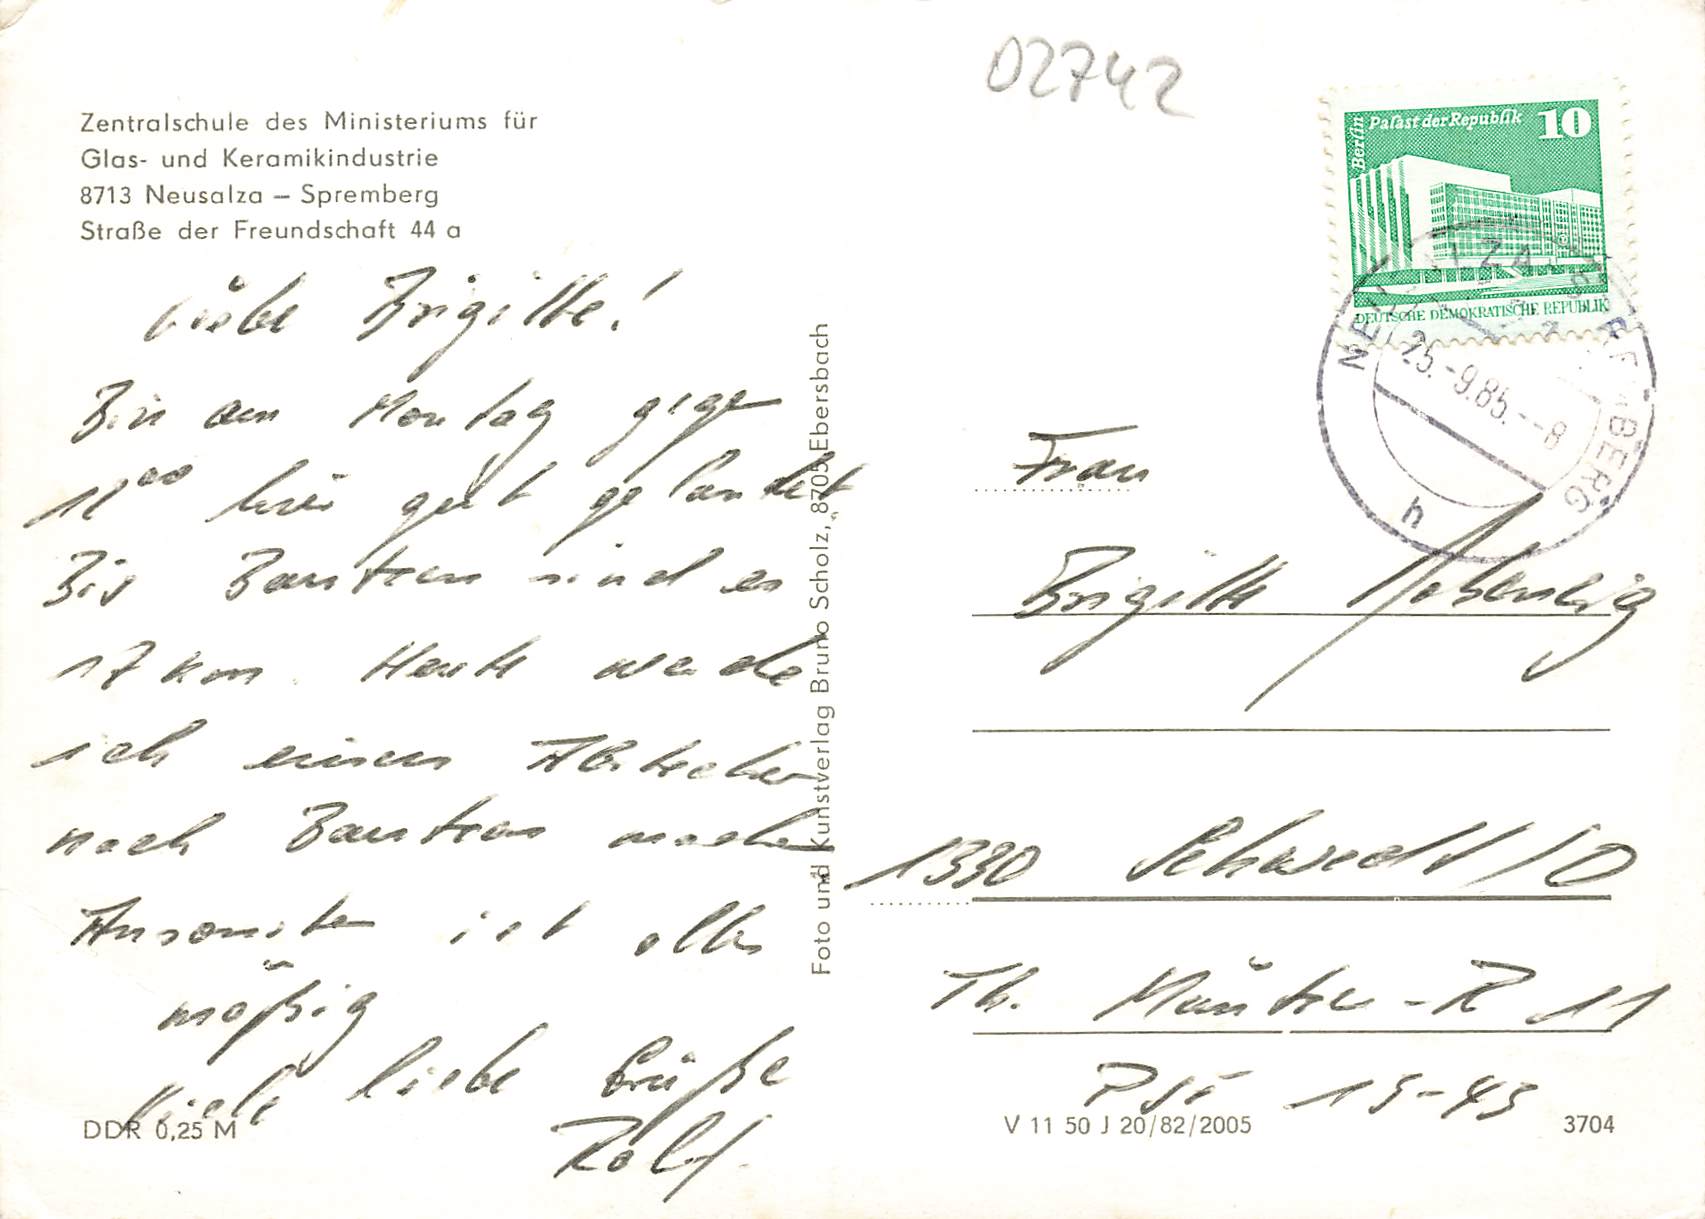 02742
Zentralschule des Ministeriums für
Glas- und Keramikindustrie
8713 Neusalza – Spremberg
Straße der Freundschaft 44 a
Liebe Brigitte!
Bin am Montag gege
11⁰⁰ hier gut gelandet
Bis Bautzen sind es
17 km. Heute werde
ich einen Abstecher
nach Bautzen machen
Ansonsten ist alles
mäßig
Viele liebe Grüße
Rolf.
DDR 0,25 M
Foto und Kunstverlag Bruno Scholz, 8705 Ebersbach
Berlin Palast der Republik 10
DEUTSCHE DEMOKRATISCHE REPUBLIK
25.-9.85.--8
h
Frau
Brigitte
1330 Schwedt/O
Th. Müntzer-R 11
PSF 15-43
V 11 50 J 20/82/2005
3704